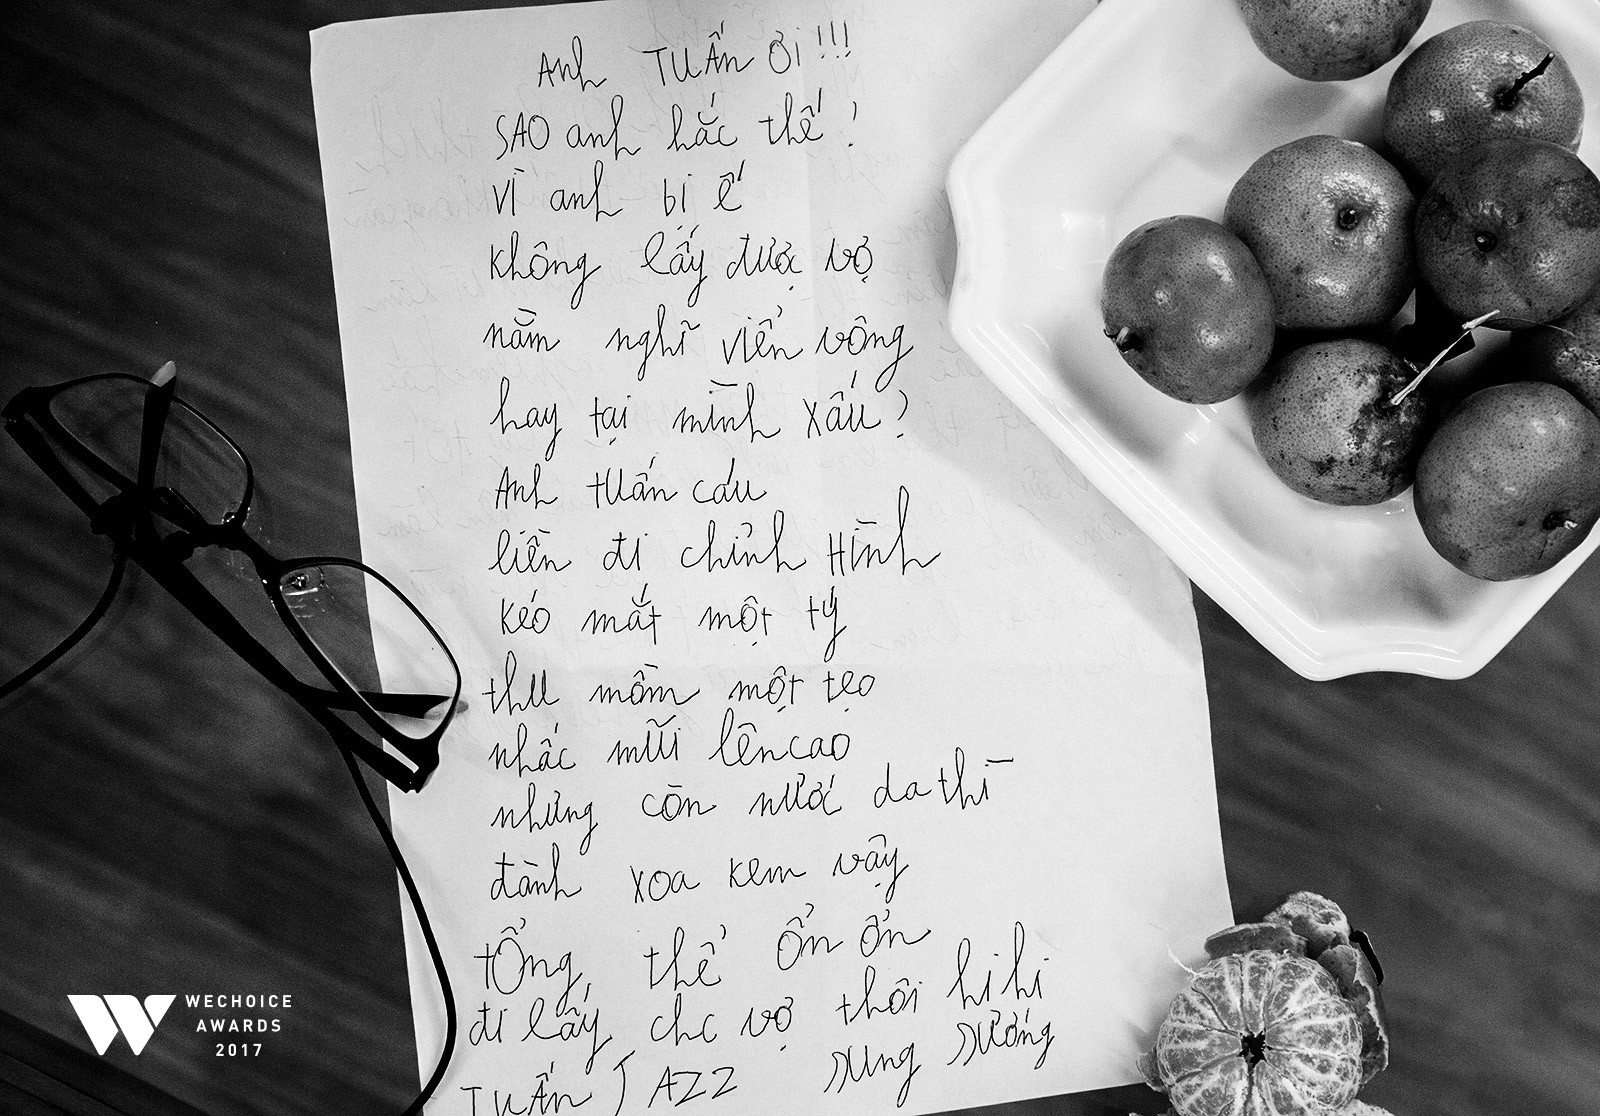 Anh TUẤN ơi!!!
SAO anh hắc thế?
vì anh bị ế
không lấy được vợ
nằm nghĩ viển vông
hay tại mình xấu?
Anh tuấn cáu
liền đi chỉnh Hình
kéo mắt một tý
thu mồm một tẹo
nhấc mũi lên cao
nhưng còn nước da thì
đành xoa kem vậy
tổng thể ổn ổn
đi lấy vợ thôi hihi
TUẤN JAZZ sung sướng
WECHOICE
AWARDS
2017